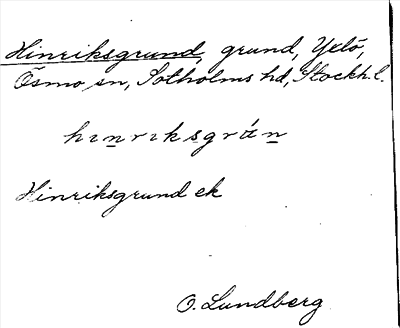 Hinriksgrund, grund, Yxlö,
Ösmo sn, Sotholms hd, Stockh. l.
hınrıksgrán
Hinriksgrund ek
O. Lundberg